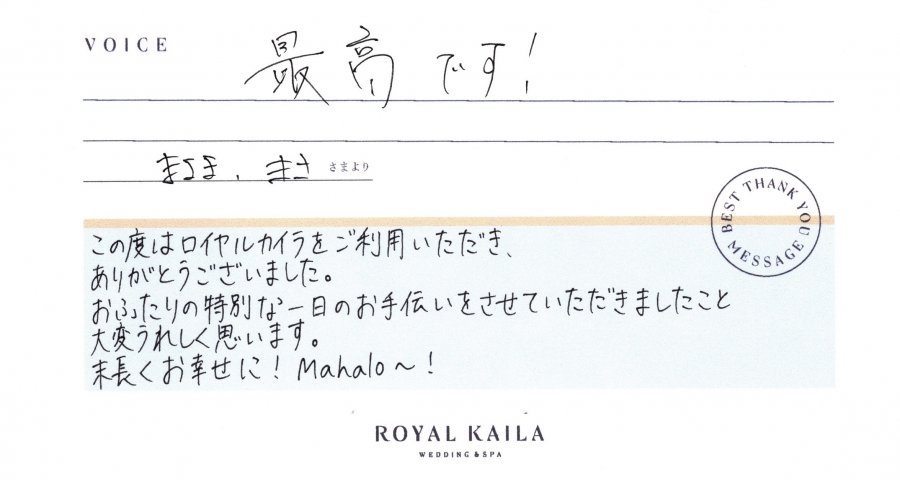 VOICE
最高です!
まさき、まさ さまより
BEST THANK YOU MESSAGE
この度はロイヤルカイラをご利用いただき、
ありがとうございました。
おふたりの特別な一日のお手伝いをさせていただきましたこと
大変うれしく思います。
末長くお幸せに! Mahalo〜!
ROYAL KAILA
WEDDING & SPA